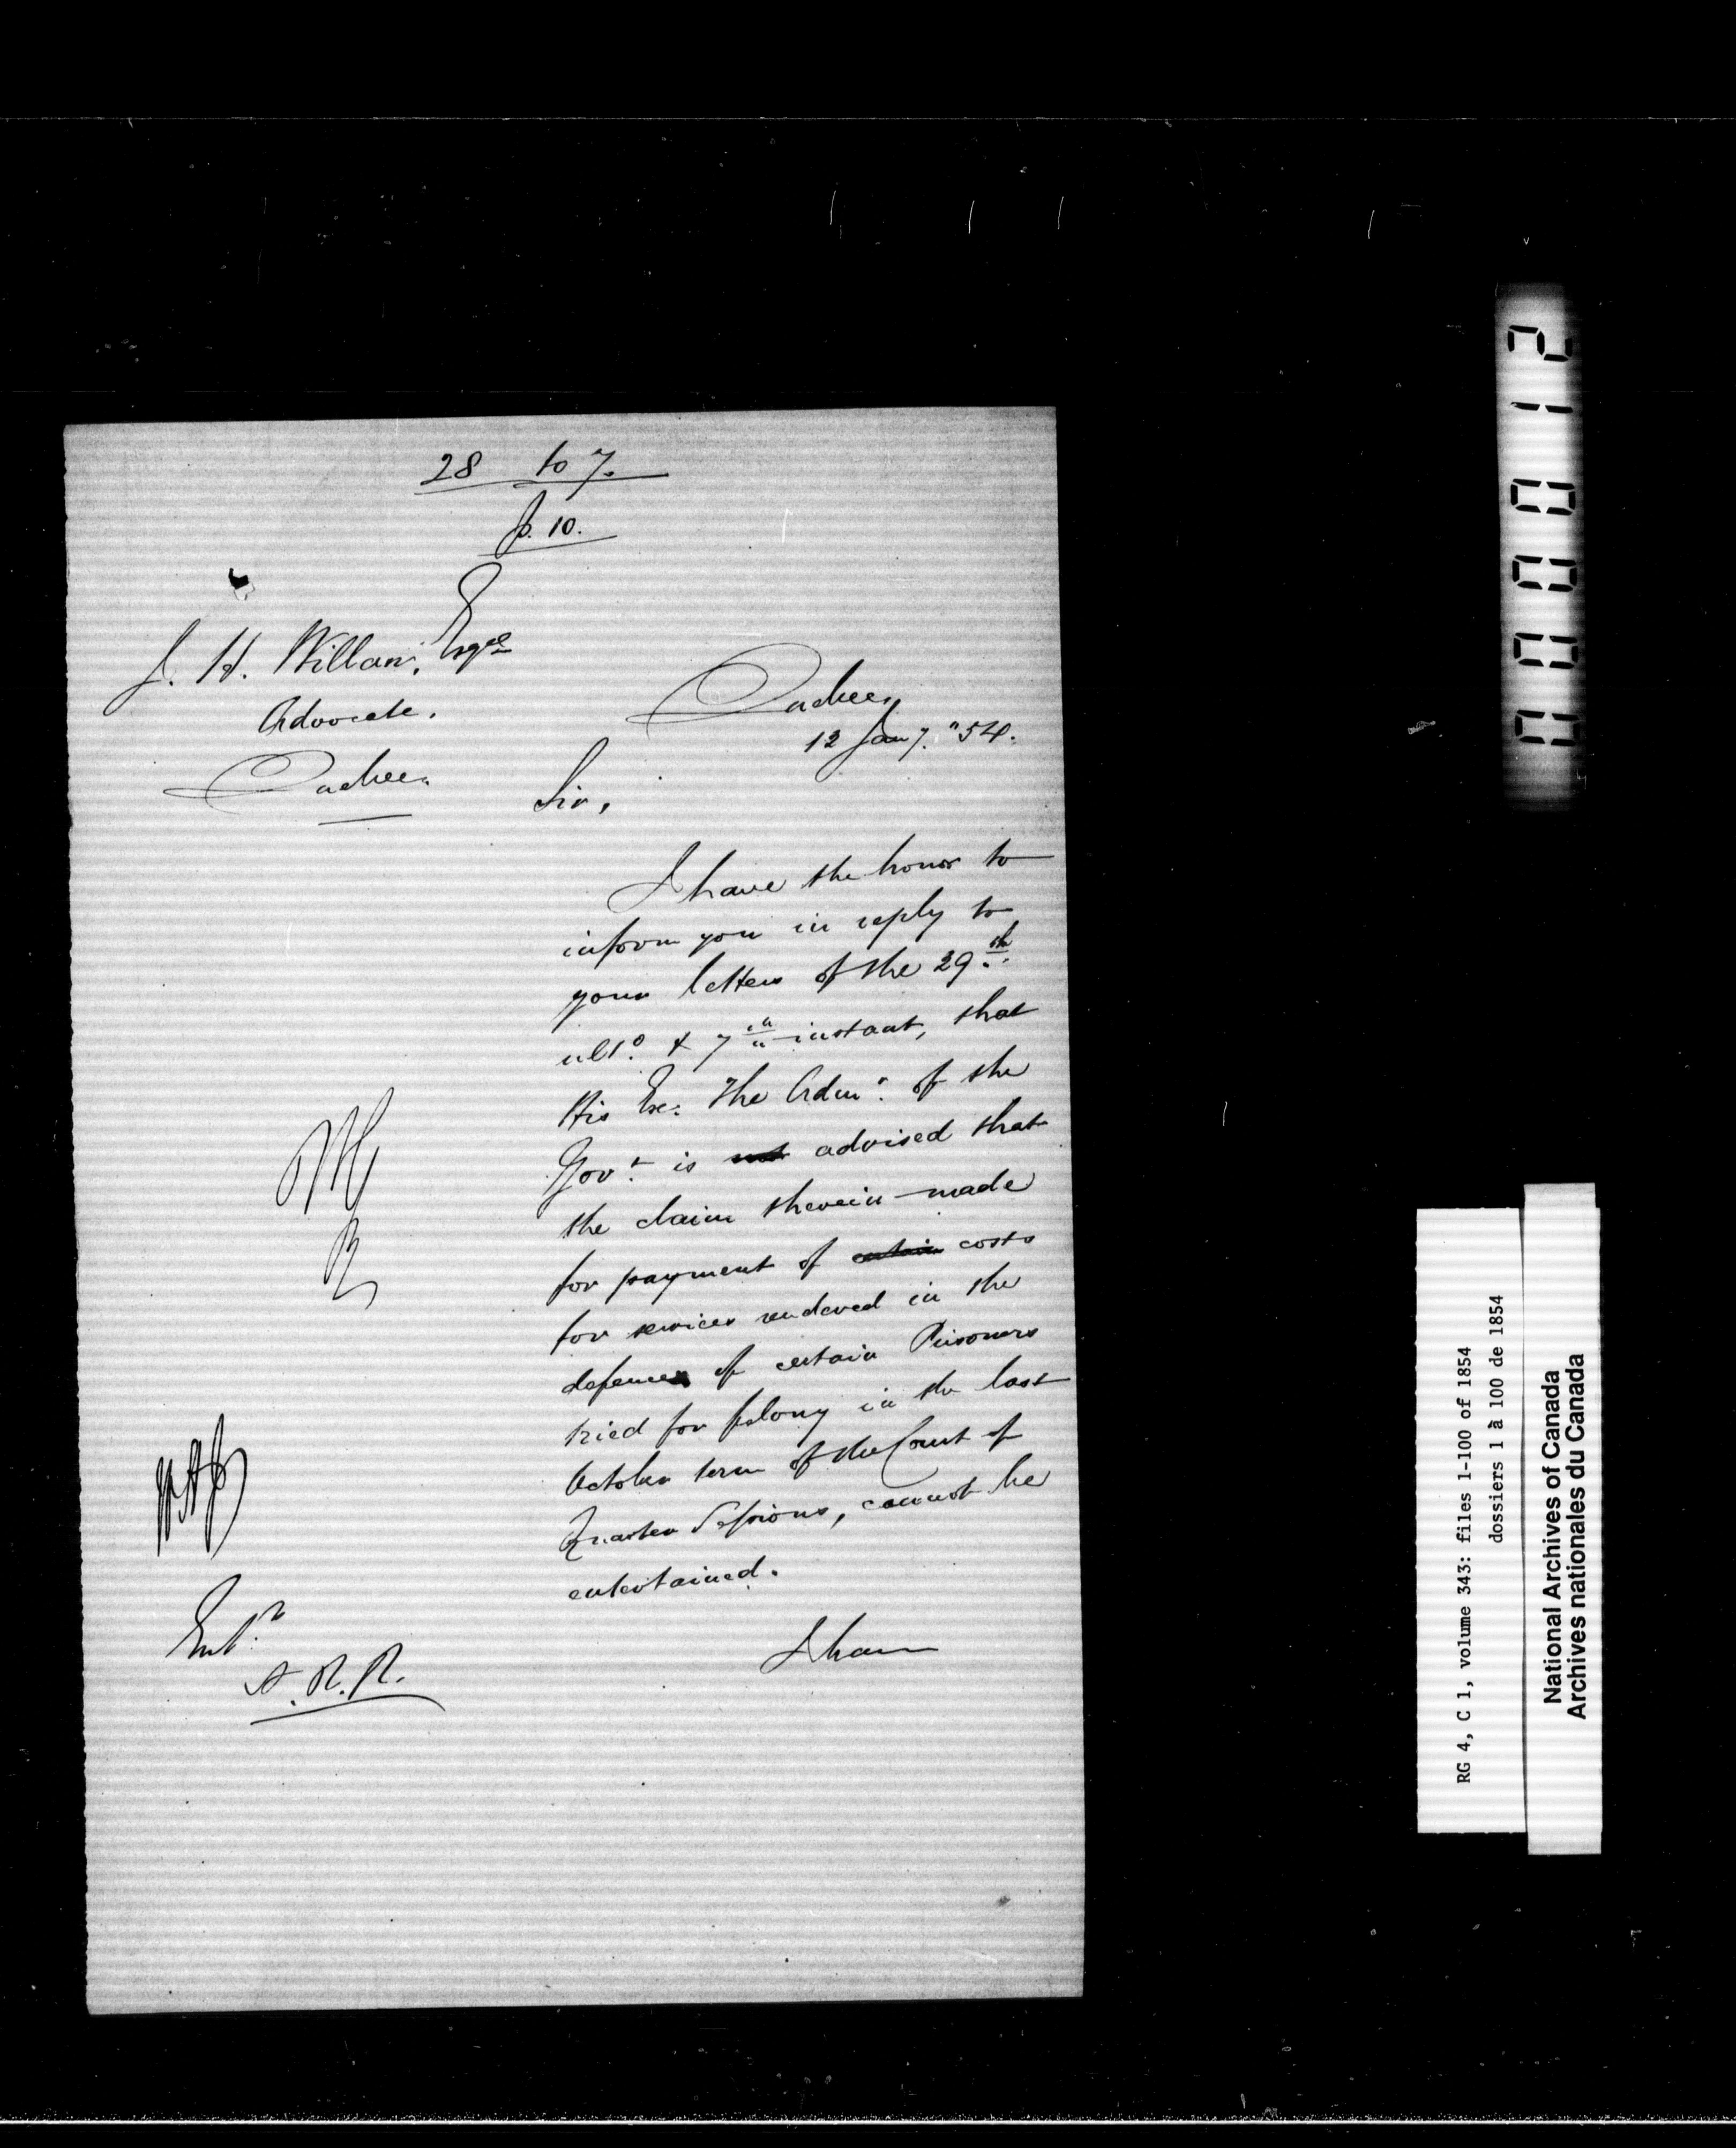 28 to 7.
p. 10.
J. H. Willan, Esqre
Advocate.
Quebec.
Quebec,
12 Jany. "54.
Sir,
I have the honor to
inform you in reply to
your letters of the 29th
ulto. & 7th instant, that
His Ex: The Admr. of the
Govt. is not advised that
the claim therein made
for payment of certain costs
for services rendered in the
defence of certain Prisoners
tried for felony in the last
October term of the Court of
Quarter Sessions, cannot be
entertained.
I have
Entd.
A. R. R.
000012
RG 4, C 1, volume 343: files 1-100 of 1854
dossiers 1 à 100 de 1854
National Archives of Canada
Archives nationales du Canada